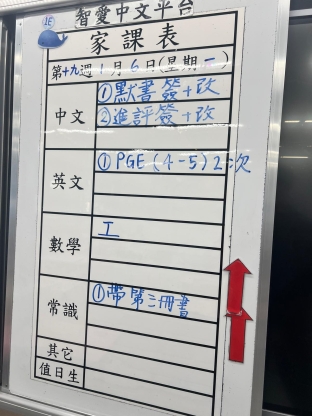 1E
智愛中文平台
家課表
第十九週 1月6日(星期一)
中文 ①默書簽+改
②進評簽+改
英文 ①PGE(4-5)2次
數學 工
常識 ①帶第三冊書
其它
值日生